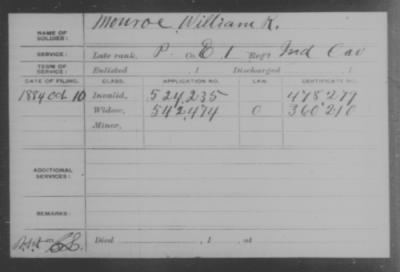 NAME OF SOLDIER: Monroe, William K.
SERVICE: Late rank, P. Co. E, 1 Reg't Ind Cav
TERM OF SERVICE: Enlisted , 1 Discharged , 1
DATE OF FILING. CLASS. APPLICATION NO. LAW. CERTIFICATE NO.
1884 Oct 10 Invalid, 524,235 478277
Widow, 542,474 O 360210
Minor,
ADDITIONAL SERVICES:
REMARKS:
Died , 1 , at